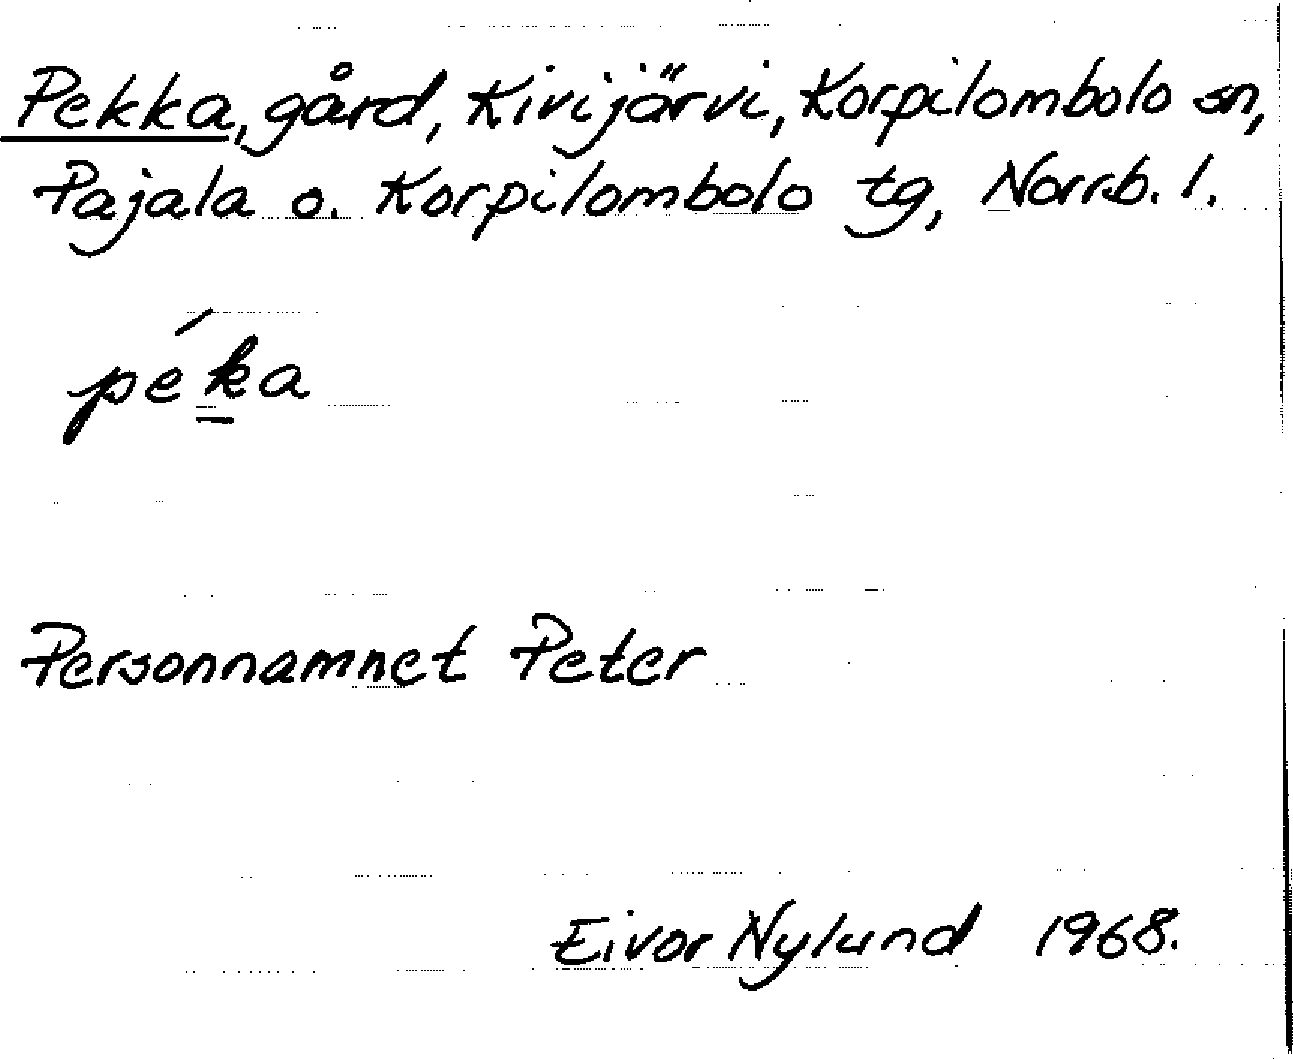 Pekka, gård, Kivijärvi, Korpilombolo sn,
Pajala o. Korpilombolo tg, Norrb. l.
péka
Personnamnet Peter
Eivor Nylund 1968.